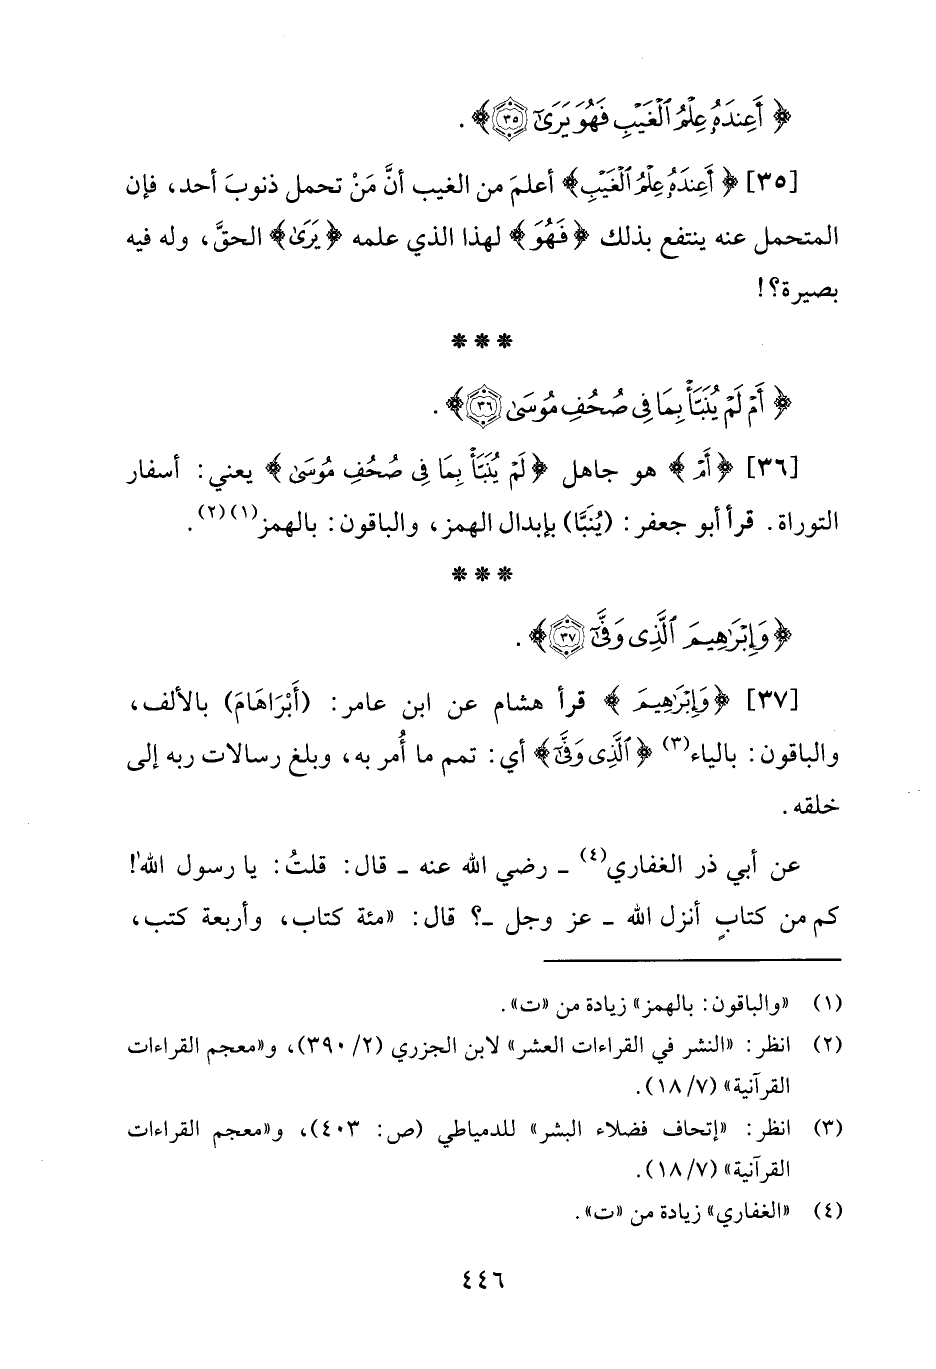 ﴿أَعِندَهُۥ عِلْمُ ٱلْغَيْبِ فَهُوَ يَرَىٰٓ ۝٣٥﴾ .
[٣٥] ﴿أَعِندَهُۥ عِلْمُ ٱلْغَيْبِ﴾ أعلمَ من الغيب أنَّ مَنْ تحمل ذنوبَ أحد، فإن
المتحمل عنه ينتفع بذلك ﴿فَهُوَ﴾ لهذا الذي علمه ﴿يَرَىٰ﴾ الحقَّ، وله فيه
بصيرة؟!
* * *
﴿أَمْ لَمْ يُنَبَّأْ بِمَا فِى صُحُفِ مُوسَىٰ ۝٣٦﴾ .
[٣٦] ﴿أَمْ﴾ هو جاهل ﴿لَمْ يُنَبَّأْ بِمَا فِى صُحُفِ مُوسَىٰ﴾ يعني: أسفار
التوراة. قرأ أبو جعفر: (يُنَبَّا) بإبدال الهمز، والباقون: بالهمز(١)(٢).
* * *
﴿وَإِبْرَٰهِيمَ ٱلَّذِى وَفَّىٰٓ ۝٣٧﴾ .
[٣٧] ﴿وَإِبْرَٰهِيمَ﴾ قرأ هشام عن ابن عامر: (أَبْرَاهَامَ) بالألف،
والباقون: بالياء(٣) ﴿ٱلَّذِى وَفَّىٰٓ﴾ أي: تمم ما أُمر به، وبلغ رسالات ربه إلى
خلقه.
عن أبي ذر الغفاري(٤) ـ رضي الله عنه ـ قال: قلتُ: يا رسول الله!
كم من كتابٍ أنزل الله ـ عز وجل ـ؟ قال: «مئة كتاب، وأربعة كتب،
(١) «والباقون: بالهمز» زيادة من «ت».
(٢) انظر: «النشر في القراءات العشر» لابن الجزري (٢/ ٣٩٠)، و«معجم القراءات
القرآنية» (٧/ ١٨).
(٣) انظر: «إتحاف فضلاء البشر» للدمياطي (ص: ٤٠٣)، و«معجم القراءات
القرآنية» (٧/ ١٨).
(٤) «الغفاري» زيادة من «ت».
٤٤٦